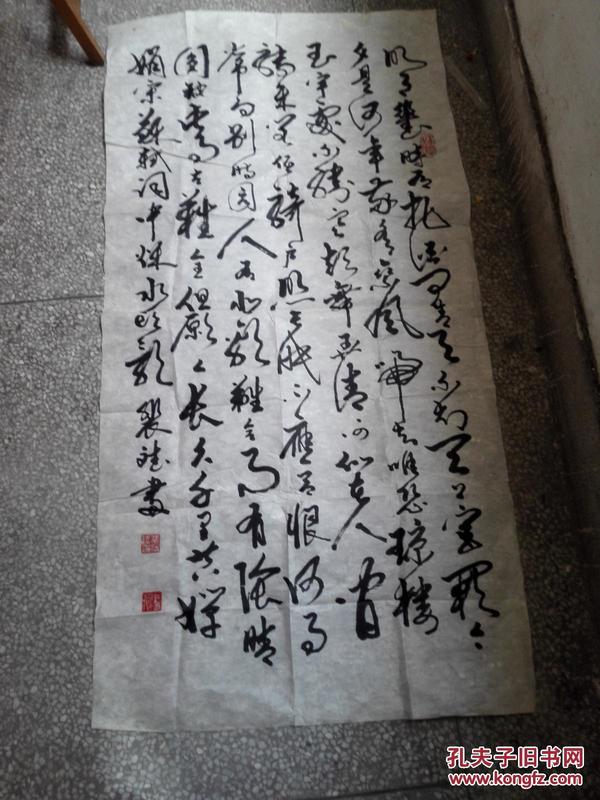 明月幾時有把酒问青天不知天上宫闕今
夕是何年我欲乘风歸去唯恐琼楼
玉宇高处不胜寒起舞弄清何似在人间
转朱阁低绮户照无眠不應有恨何事
常向别時圆人有悲歡離合月有陰晴
圆缺此事古難全但愿人长久千里共婵
娟宋蘇轼词中秋水调歌 裴雄書
孔夫子旧书网
www.kongfz.com